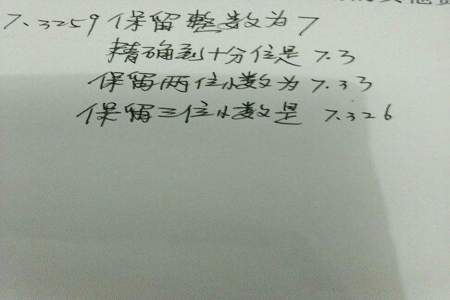 7.3259保留整数为7
精确到十分位是 7.3
保留两位小数为7.33
保留三位小数是 7.326